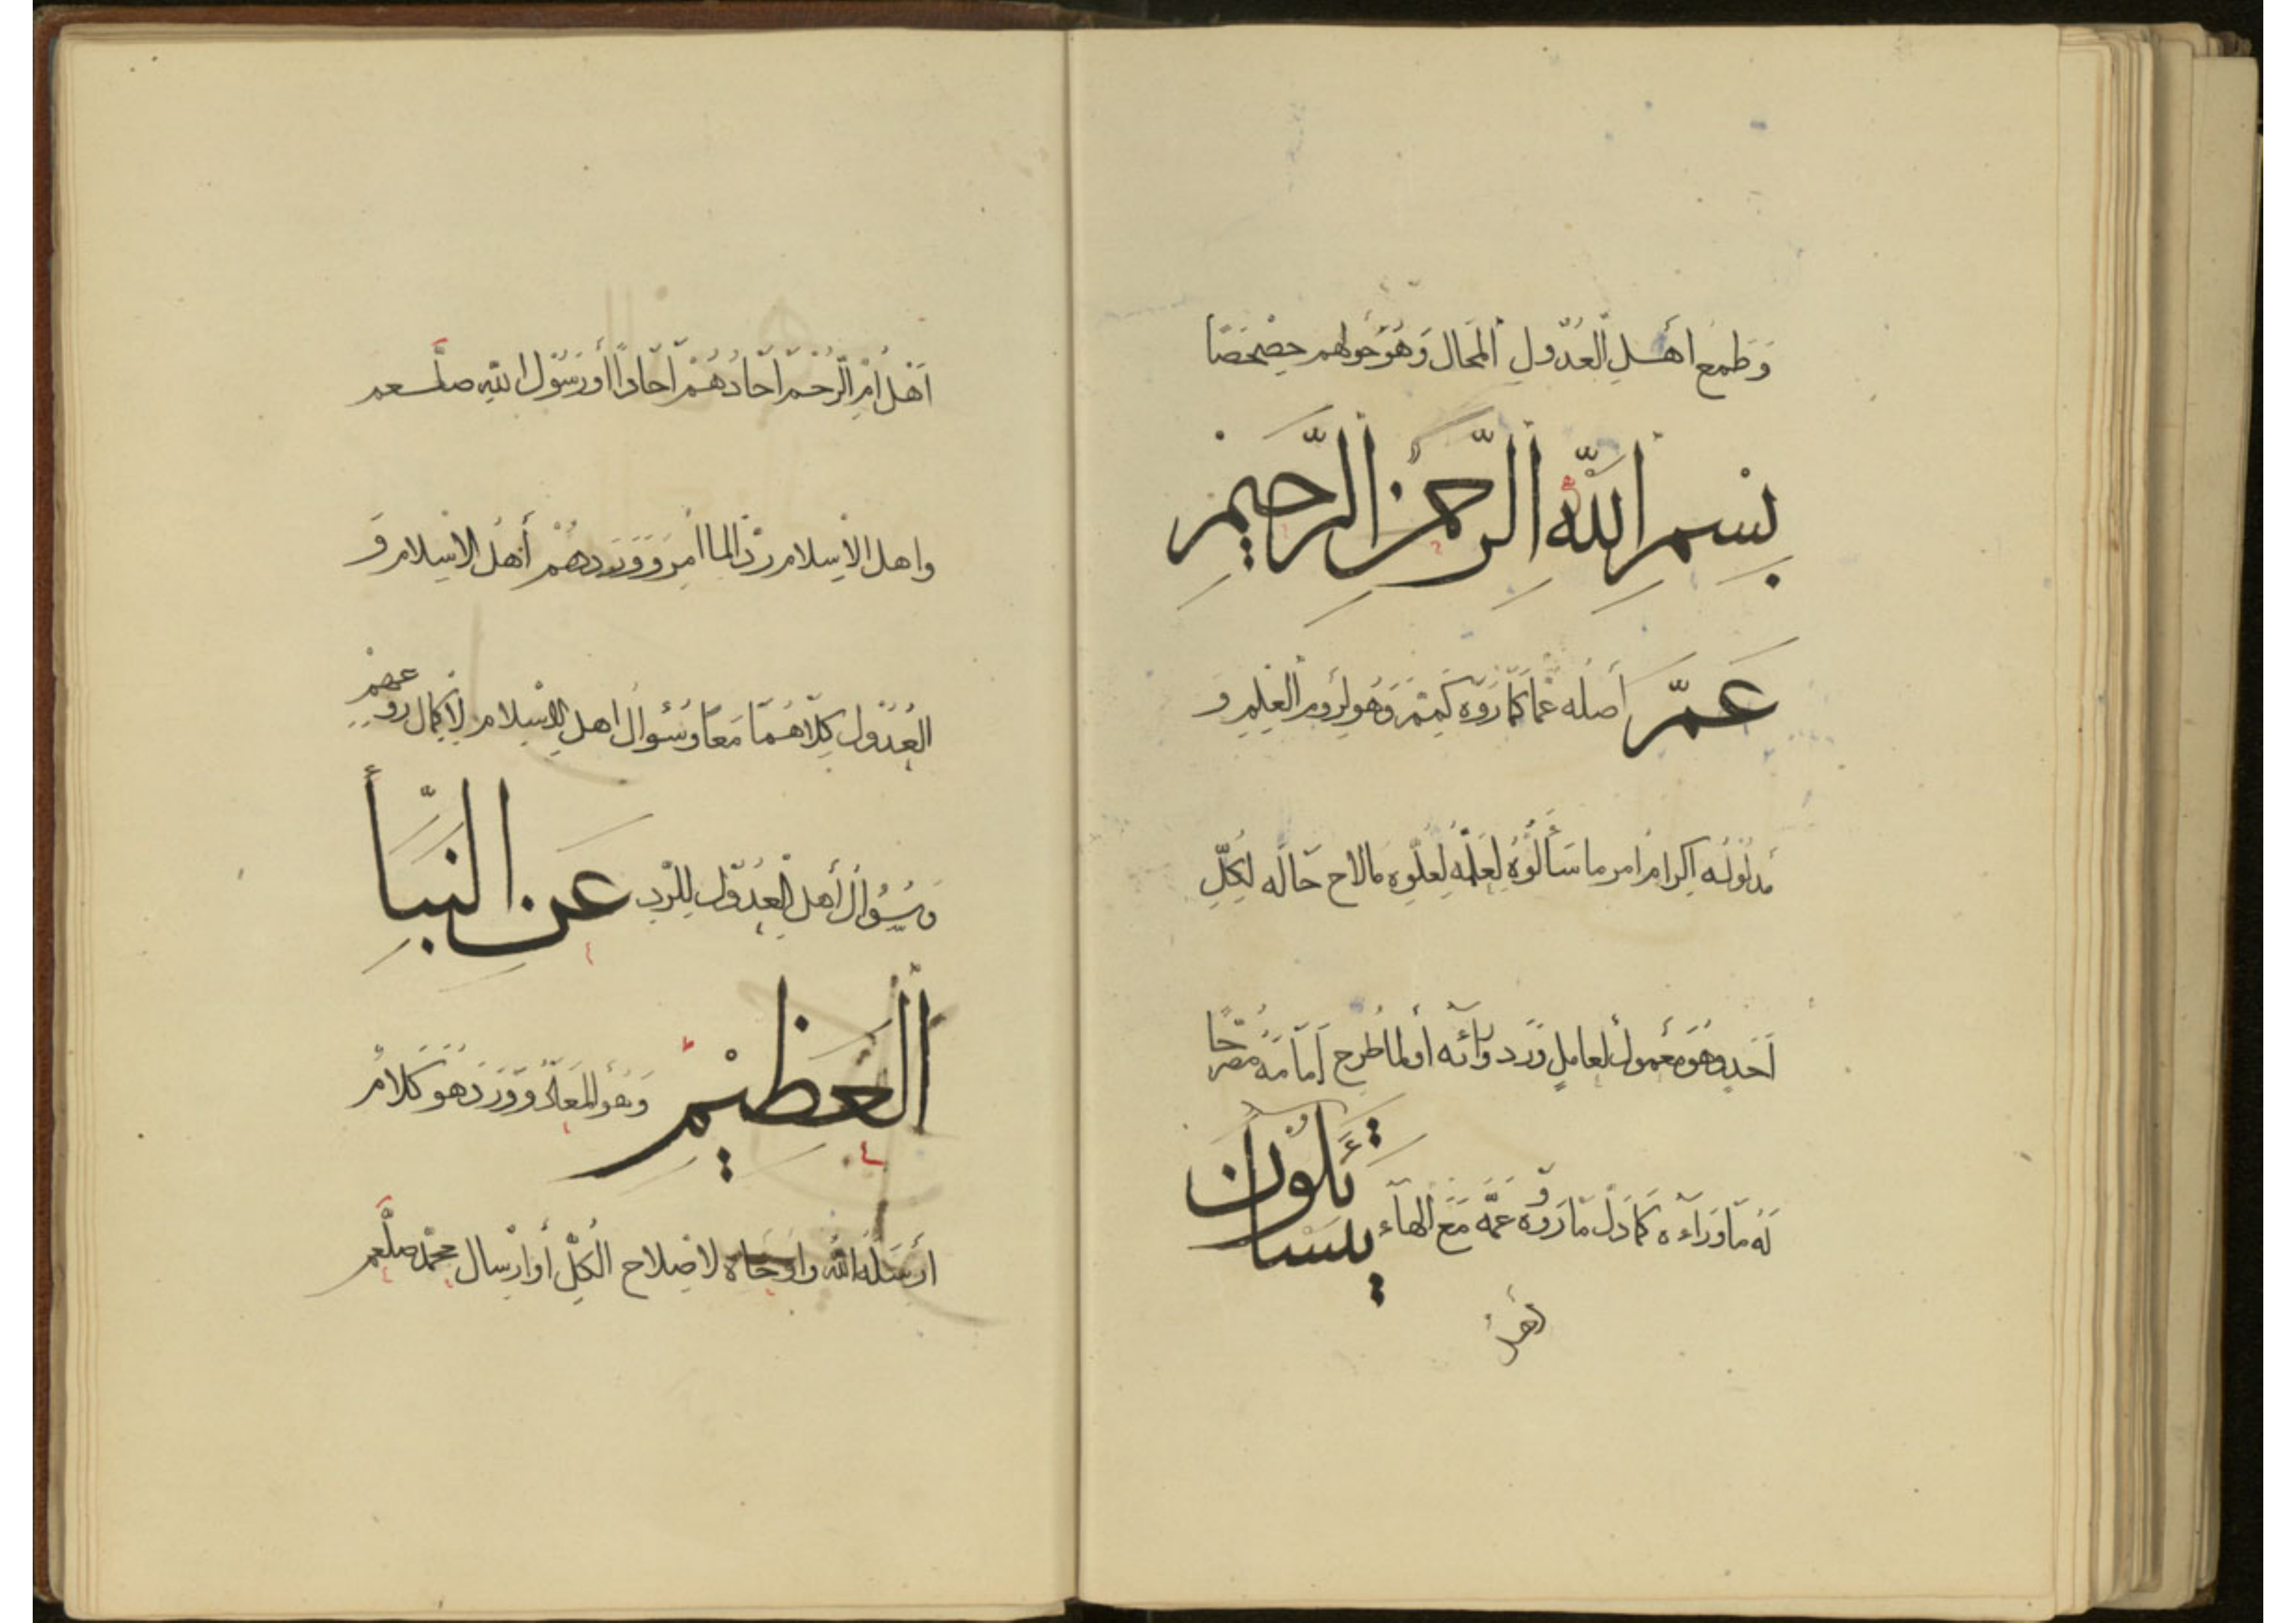 وَطَمَعِ اهْلِ الْعُدُولِ الْمَحَالَ وَهُوَ حِولُهم حِصْحَصًا
بِسْمِ اللّٰهِ الرَّحْمٰنِ الرَّحِيْمِ
عَمَّ أصله عَمَّا كَمَا رَوَوْهُ وَهُوَ
مدلُولُه اِكرام امر ما سَأَلُوْهُ لِعِلْمِه لِعُلُوِّه مالاح حَالُه لِكُلِّ
اَحَدٍ وهُوَ مَعْمولُ لعامِلٍ وَرَد وَرَاءَهُ أو لما طُرِح اَمَامَهُ مصرحًا
لَهُ مَا وَرَاءَه كَمَا دَلَّ مَا رَوَوْهُ عَمَّهْ مَعَ الْهَاءِ يَتَسَاءَلُوْنَ
اهل
اَهْلُ اُمِّ الرُّحْمِ اٰحَادُهُمْ اٰحَادًا أو رَسُوْلَ اللّٰهِ صلعم
واهل الاسلام رَدًّا لما اُمِرَ وَوَرَدَ هُمْ أهْلُ الاسلام وَ
الْعُدُوْلِ كِلَاهُمَا مَعًا وَسُؤالُ اهلِ الاسلام لِاِكمال روعهم
وَسُؤالُ أهل الْعُدُوْلِ لِلرَّدِّ عَنِ النَّبَأِ
الْعَظِيْمِ وَهُوَ الْمَعَادُ وَوَرَدَ هو كَلامٌ
ارْسَلَهُ اللّٰهُ واَوْحَاهُ لاِصْلاحِ الْكُلِّ أو اِرْسال محمّد صلعم